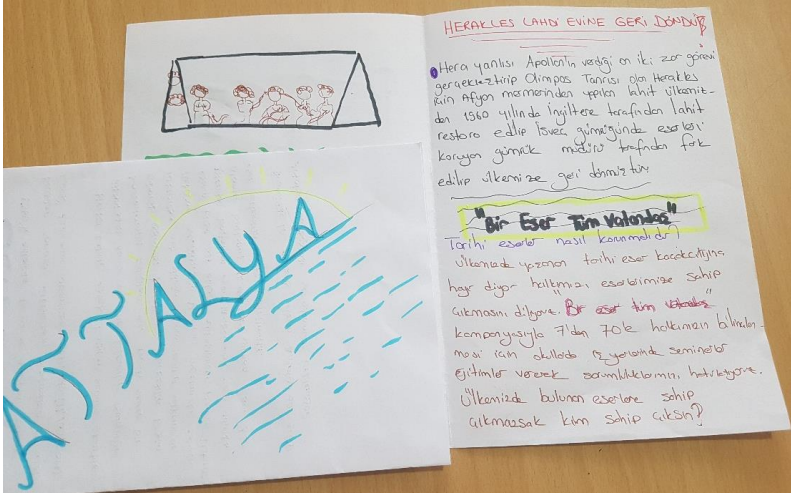 HERAKLES LAHDİ EVİNE GERİ DÖNDÜ!
Hera yanlısı Apollon'in verdiği on iki zor görevi
gerçekleştirip Olimpos Tanrısı olan Herakles
için Afyon mermerinden yapılan lahit ülkemiz-
den 1960 yılında İngiltere tarafından lahit
restore edilip İsveç gümrüğünde eserleri
koruyan gümrük müdürü tarafından fark
edilip ülkemize geri dönmüştür
"Bir Eser Tüm Vatandaş"
Tarihi eserler nasıl korunmalıdır?
Ülkemizde yaşanan tarihi eser kaçakçılığına
hayır diyor halkımızı eserlerimize sahip
çıkmasını diliyoruz. "Bir eser tüm vatandaş"
kampanyasıyla 7'den 70'e halkımızın bilinçlen-
mesi için okullarda iş yerlerinde seminerler
eğitimler vererek sorumluluklarının hatırlatıyoruz.
Ülkemizde bulunan eserlere sahip
çıkmazsak kim sahip çıksın?
ATTALYA